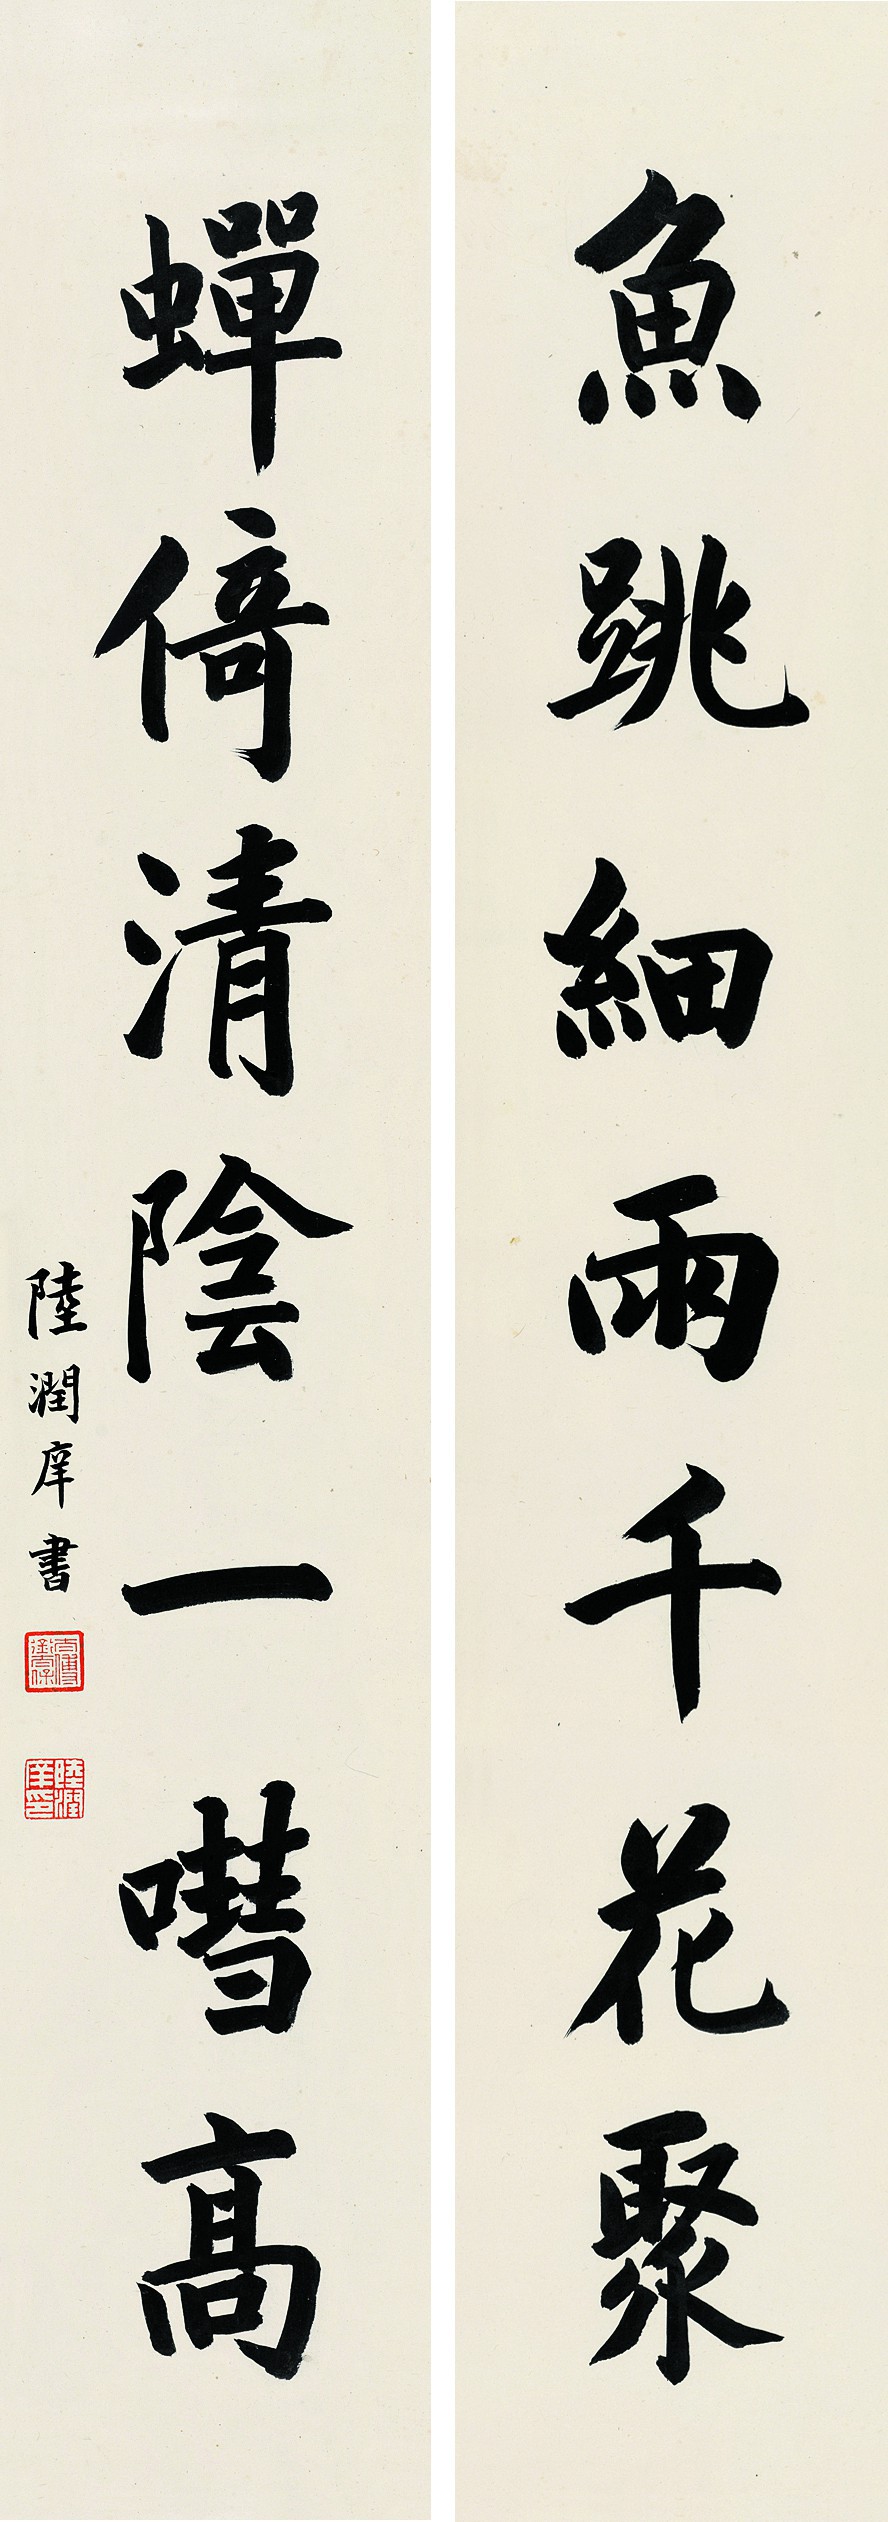 魚跳細雨千花聚
蟬倚清陰一嘒高
陸潤庠書
陸潤庠印